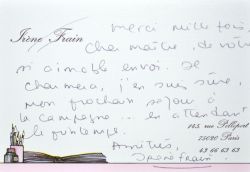 Irène Frain
Merci mille fois,
Cher maître, de votre
si aimable envoi. Il
charmera, j'en suis sûre,
mon prochain séjour à
la campagne... en attendant
le printemps.
Amitiés,
Irène Frain
145 rue Pelleport
75020 Paris
43 66 63 63